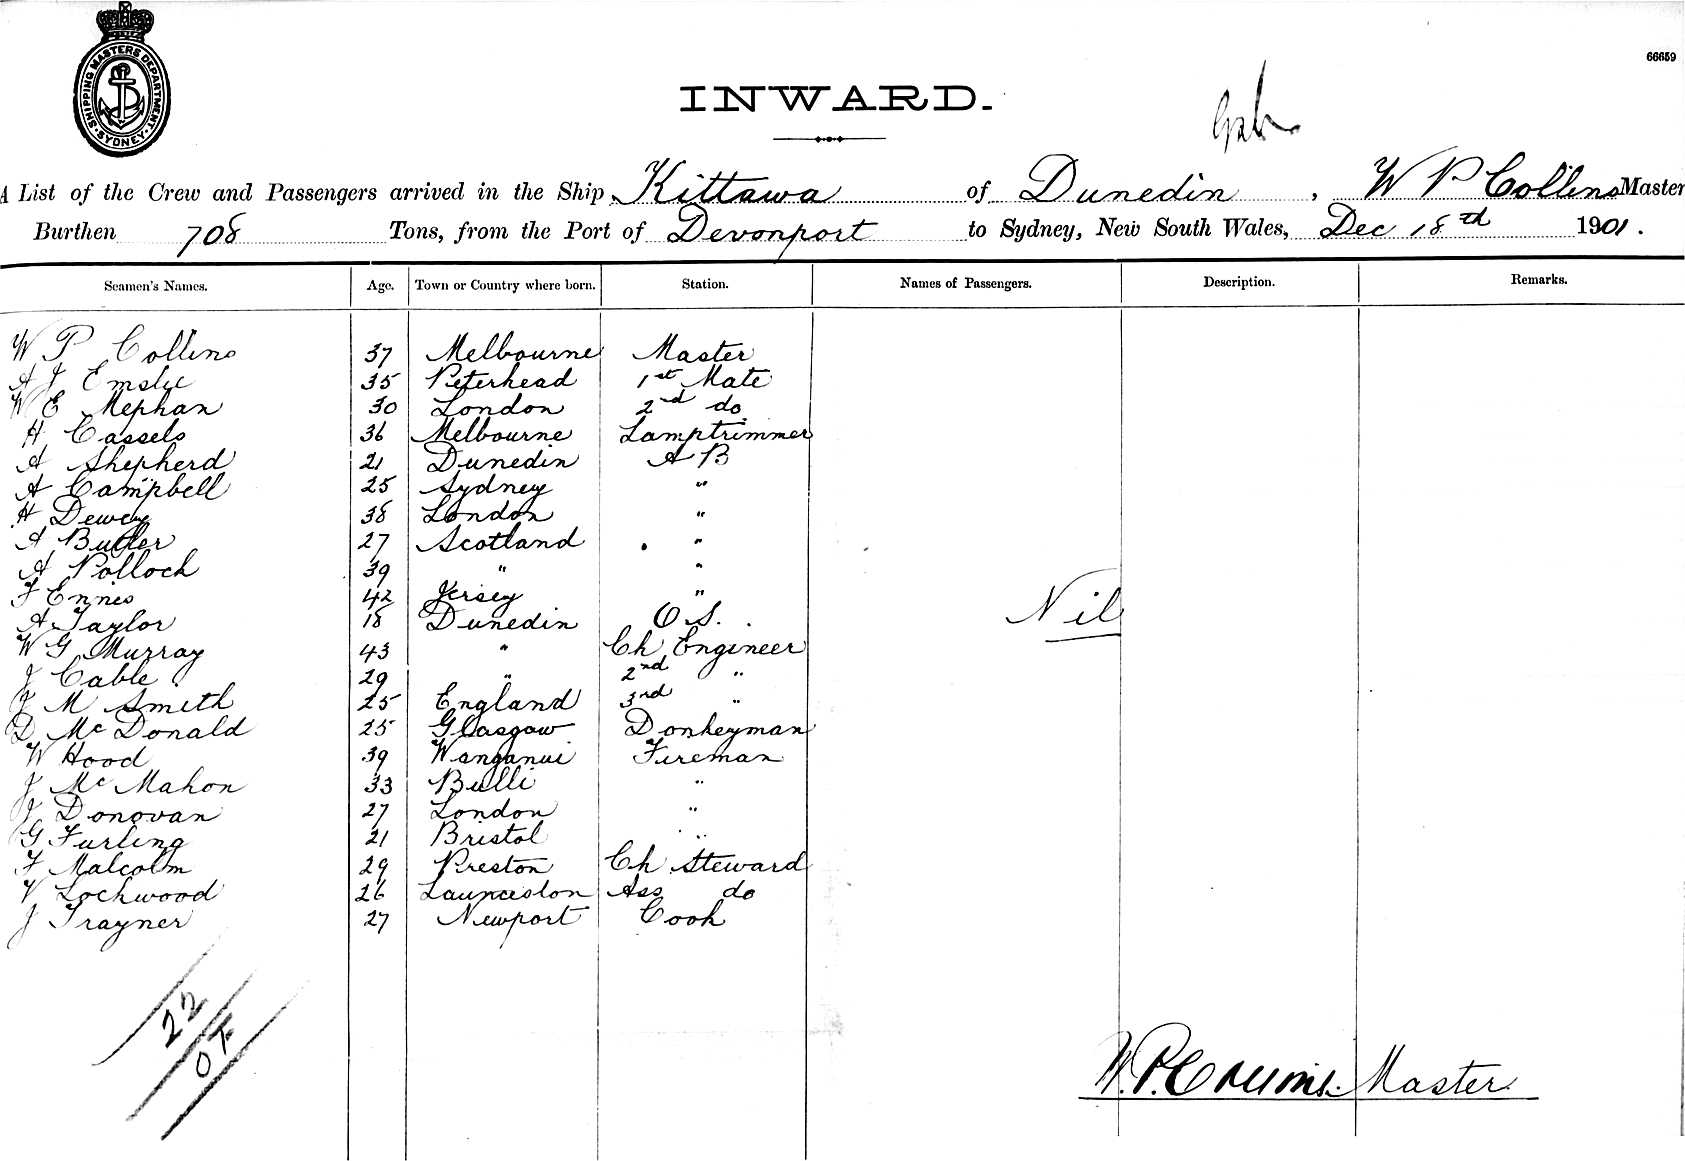 SHIPPING MASTERS DEPARTMENT · SYDNEY ·
66659
INWARD.
A List of the Crew and Passengers arrived in the Ship Kittawa of Dunedin, W P Collins Master
Burthen 708 Tons, from the Port of Devonport to Sydney, New South Wales, Dec 18th 1901.
Seamen's Names. Age. Town or Country where born. Station. Names of Passengers. Description. Remarks.
W P Collins 37 Melbourne Master
A J Emslie 35 Peterhead 1st Mate
W E Mephan 30 London 2nd do
H Cassels 36 Melbourne Lamptrimmer
A Shepherd 21 Dunedin A B
A Campbell 25 Sydney "
H Dewey 38 London "
A Butler 27 Scotland "
A Pollock 39 " "
F Ennis 42 Jersey "
A Taylor 18 Dunedin O.S.
Nil
W G Murray 43 " Ch Engineer
J Cable 29 " 2nd "
J M Smith 25 England 3rd "
D McDonald 25 Glasgow Donkeyman
W Hood 39 Wanganui Fireman
J McMahon 33 Bulli "
J Donovan 27 London "
G Furling 21 Bristol "
F Malcolm 29 Preston Ch Steward
V Lockwood 26 Launceston Ass do
J Trayner 27 Newport Cook
22
W.P. Collins. Master